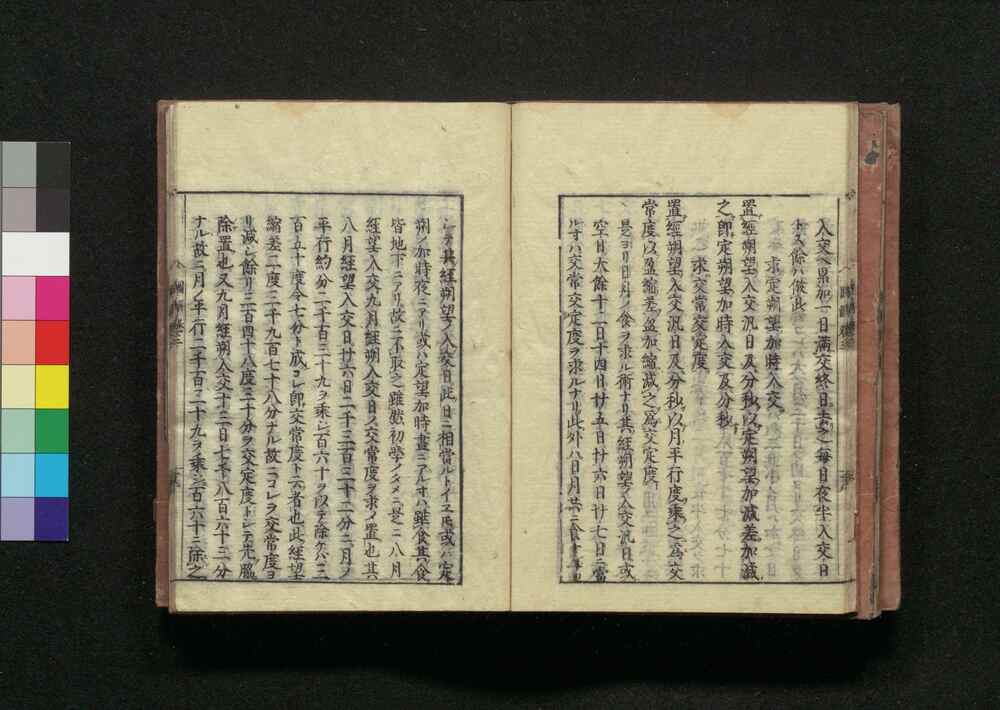 入交〻累加一日滿交終日去之毎日夜半入交日
トス余ハ倣此
求定朔望加時入交
置經朔望入交汎日及分秒以定朔望加減差加減
之即定朔望加時入交及分秒
求交常交定度
置經朔望入交汎日及分秒以月平行度乘之為交
常度以盈縮差盈加縮減之為交定度
是ヨリ日月ノ食ヲ求ル術ナリ其經朔望ノ入交汎日或
空日大餘十二日十四日廿五日廿六日廿七日ニ當
ル寸ハ交常交定度ヲ求ルナリ此外ハ日月共ニ食
シテ其經朔望ノ入交日此日ニ相當ルトイエ𪜈或ハ定
朔ノ加時夜ニアリ或ハ定望加時晝ニアル寸ハ雖食其食
皆地下ニアリ故ニ不取之雖然初學ノタメニ是ニ八月
經望ノ入交九月經朔入交日ノ交常度ヲ求メ置也其
八月經望入交廿六日二千三百三十二分ニ月ノ
平行約分二千百三十九ヲ乘シ百六十ヲ以テ除ケハ三
百五十度令七分ト成コレ即交常度ト云者也此經望
縮差二度二千九百七十八分ナル故ニコレヲ交常度ヨ
リ減シ餘リ三百四十八度三十分ヲ交定度トシテ光
除置也又九月經朔入交十三日七千八百六十三分
ナル故ニ月ノ平行二千百三十九ヲ乘シ百六十ニ除之